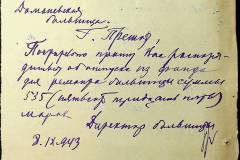 Доманевская
больница.
Г. Прешоф!
Покорнейше прошу Вас распоря-
диться об отпуске из фонда
для ремонта больницы суммы
535 (пятьсот тридцать пять)
марок
Директор больницы
8.12.943